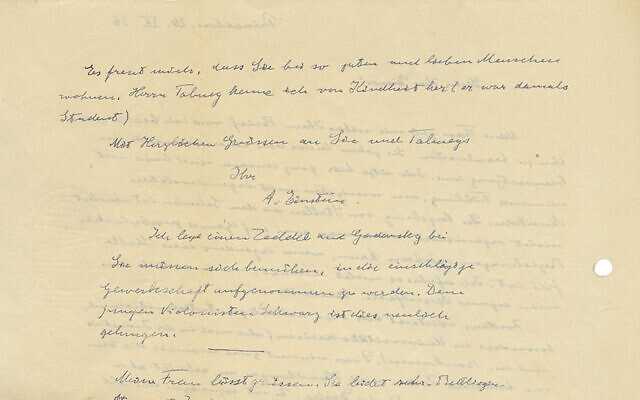 Es freut mich, dass Sie bei so guten und lieben Menschen
wohnen. Herrn Talmey kenne ich von Kindheit her (er war damals
Student)
Mit Herzlichen Grüssen an Sie und Talmeys
Ihr
A. Einstein.
Ich lege einen Zeddel an Godowsky bei
Sie müssen sich bemühen, in die einschlägige
Gewerkschaft aufgenommen zu werden. Dem
jungen Violonisten Schwarz ist dies neulich
gelungen.
Meine Frau lässt grüssen. Sie leidet sehr.